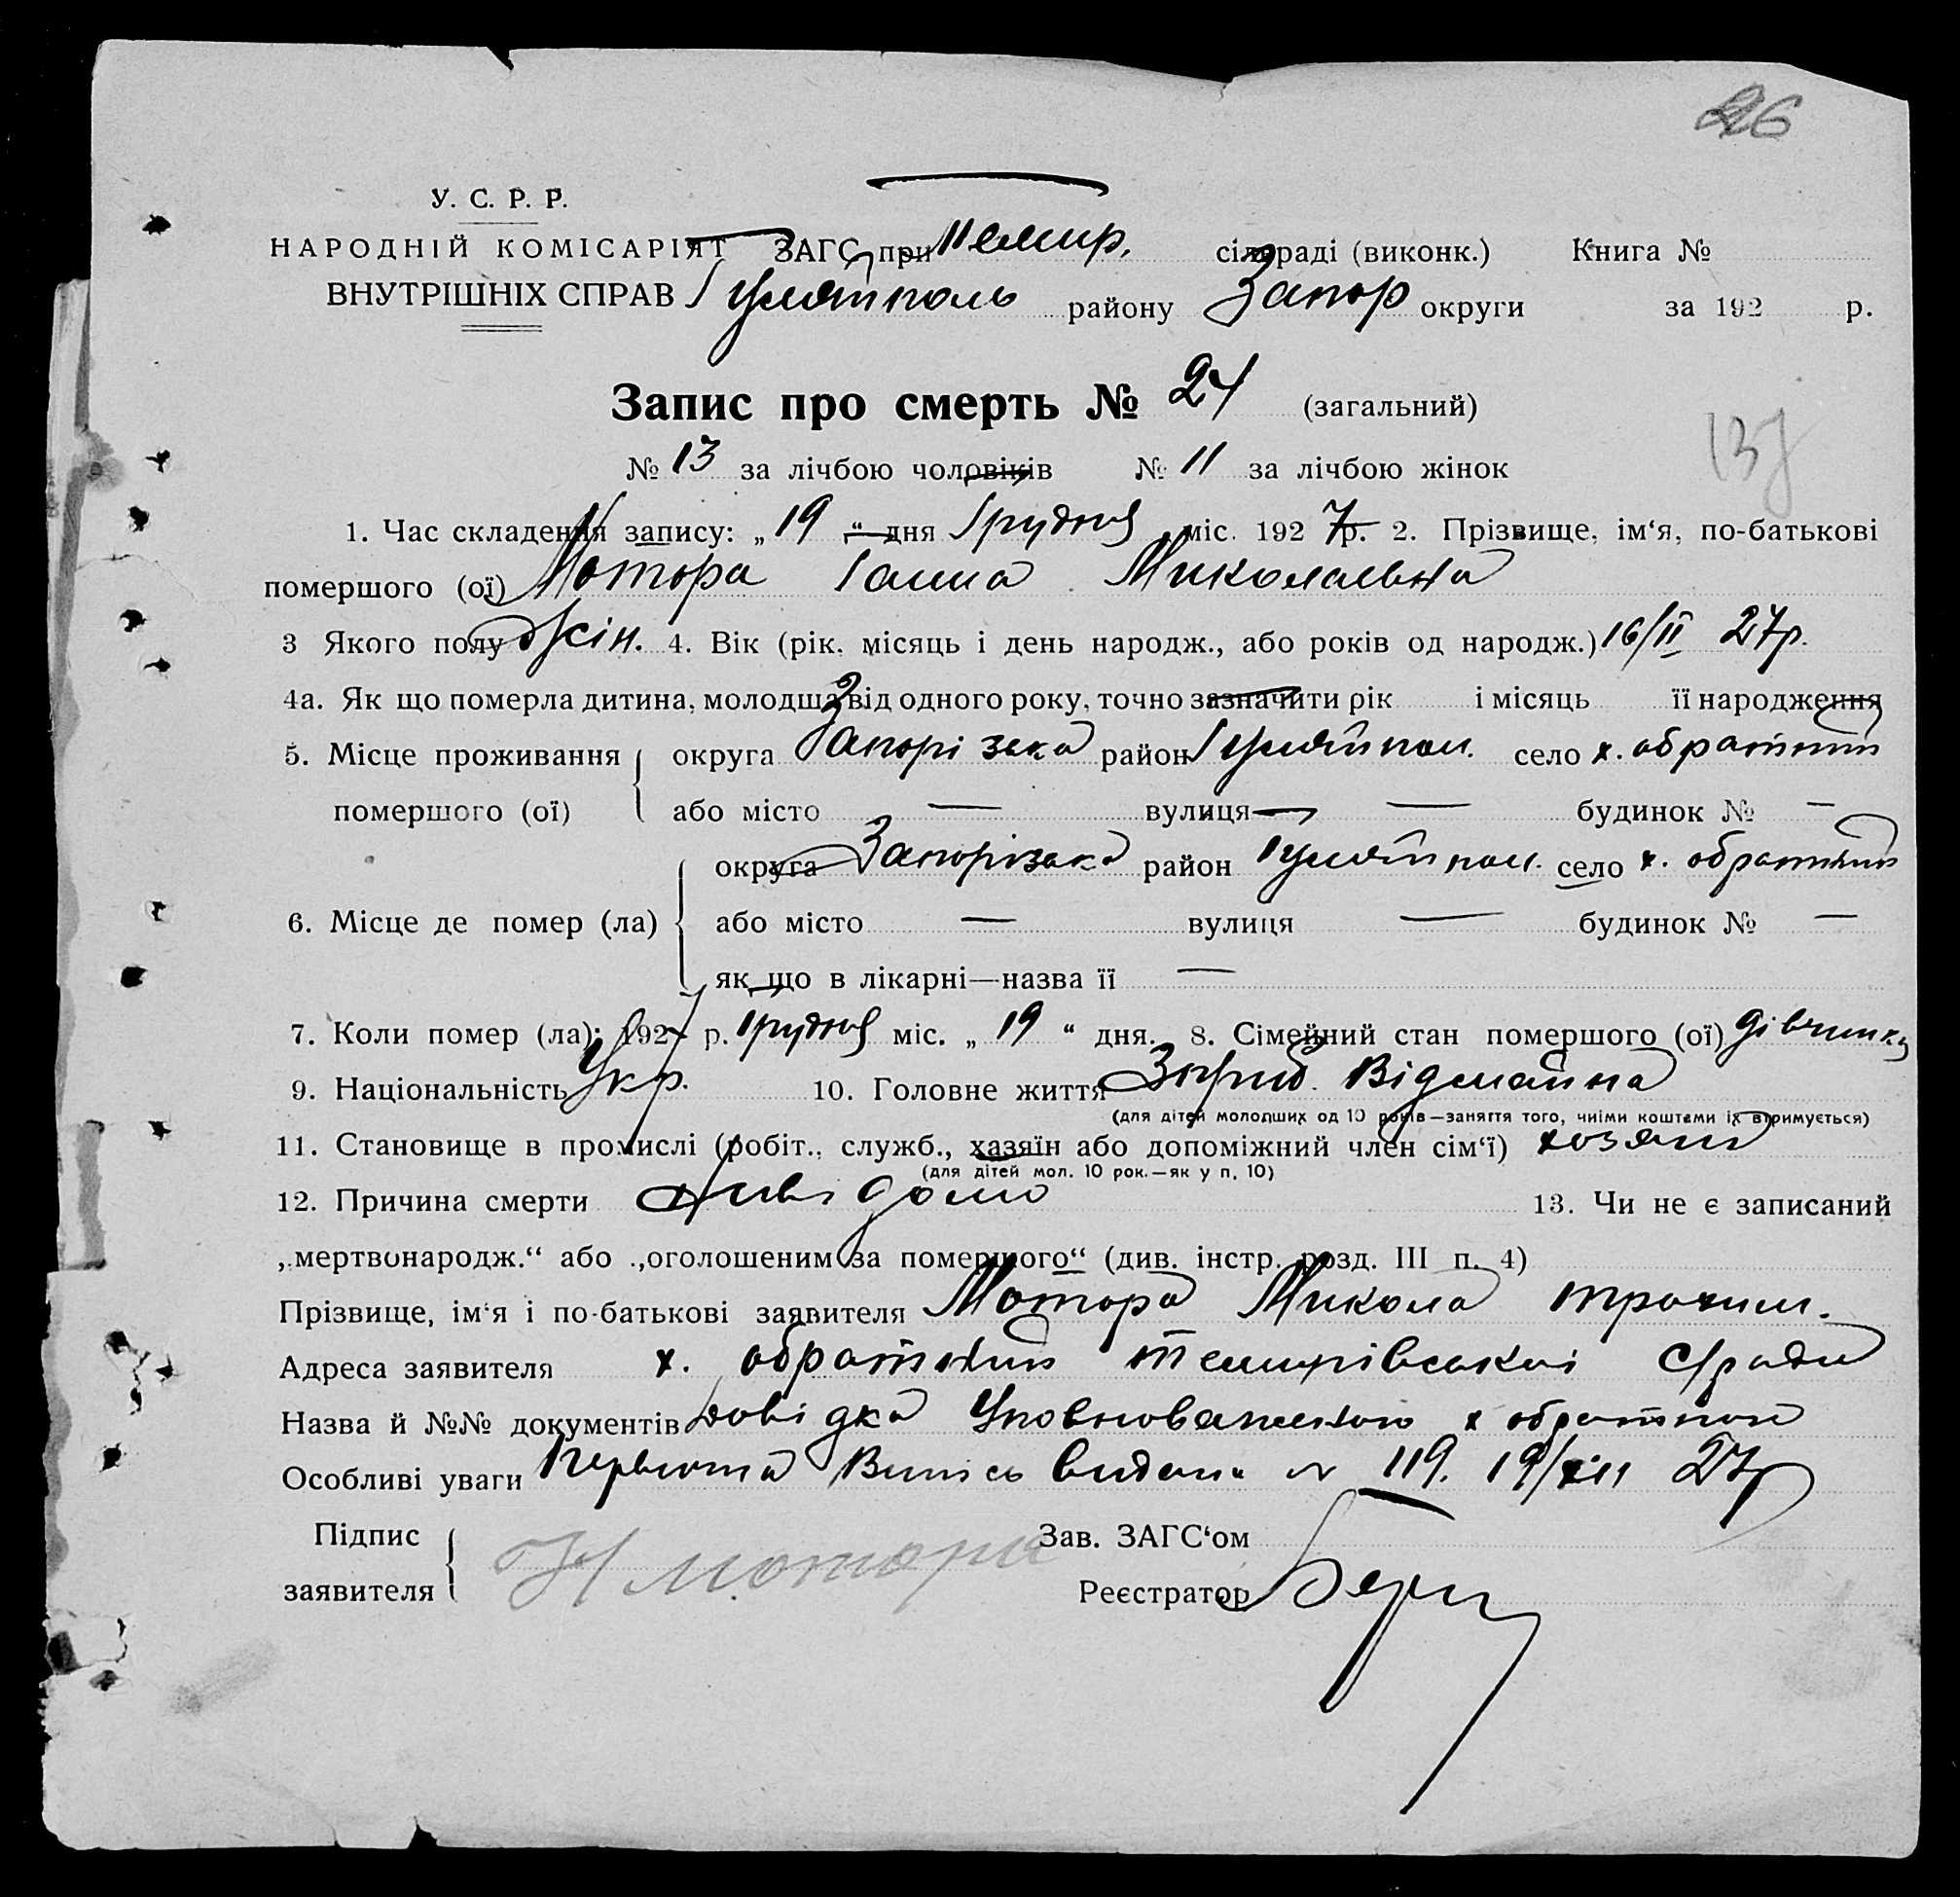 26
У. С. Р. Р.
НАРОДНІЙ КОМІСАРІЯТ ЗАГС при Темир. сільраді (виконк.) Книга №
ВНУТРІШНІХ СПРАВ Гуляйполь району Запор округи за 192 р.
Запис про смерть № 24 (загальний)
№ 13 за лічбою чоловіків № 11 за лічбою жінок
137
1. Час складення запису: „19“ дня Грудня міс. 1927 р. 2. Прізвище, ім'я, по-батькові
помершого (ої) Мотора Ганна Миколаевна
3 Якого полу жін. 4. Вік (рік, місяць і день народж., або років од народж.) 16/II 27р.
4а. Як що померла дитина, молодша від одного року, точно зазначити рік і місяць її народження
5. Місце проживання округа Запорізька район Гуляйпол. село х. обратний
помершого (ої) або місто — вулиця — будинок № —
округа Запорізька район Гуляйпол. село х. обратний
6. Місце де помер (ла) або місто — вулиця — будинок № —
як що в лікарні—назва її —
7. Коли помер (ла): 1927 р. Грудня міс. „19“ дня. 8. Сімейний стан помершого (ої) дівчинка
9. Національність Укр. 10. Головне життя
(для дітей молодших од 10 років—заняття того, чиїми коштами їх втримується)
11. Становище в промислі (робіт., служб., хазяїн або допоміжний член сім'ї) хозяин
(для дітей мол. 10 рок.—як у п. 10)
12. Причина смерти Невідомо 13. Чи не є записаний
„мертвонародж.“ або „оголошеним за помершого“ (див. інстр. розд. III п. 4)
Прізвище, ім'я і по-батькові заявителя Мотора Микола трохим.
Адреса заявителя х. обратний темирівської с/ради
Назва й №№ документів Довідка Уповноваженого х обратного
Особливі уваги Первична Випись видана № 119. 19/XII 27р
Підпис Зав. ЗАГС'ом
заявителя Н мотора Реєстратор